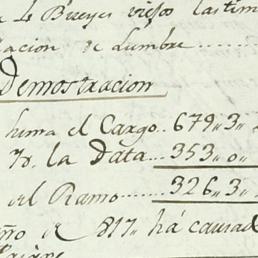 4 Bueyes viejos lastim
lacion de Lumbre
Demostracion
el Cargo.. 679,, 3,,
Yd. la Data... 353,, 0,,
el Ramo....... 326,, 3,,
ño de 817,, há causad